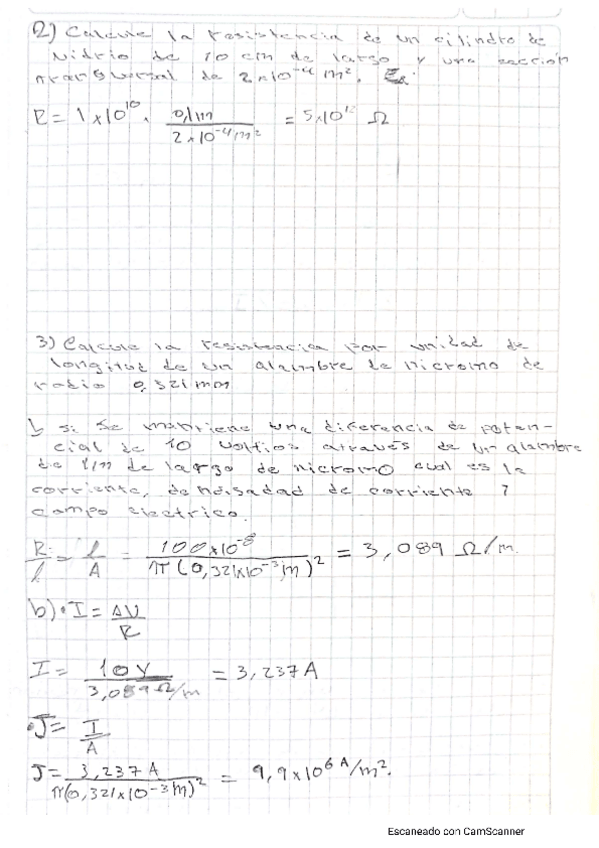 2) Calcule la resistencia de un cilindro de
vidrio de 10 cm de largo y una sección
transversal de 2×10⁻⁴ m².
R = 1×10¹⁰ · 0,1m / 2×10⁻⁴m² = 5×10¹² Ω
3) Calcule la resistencia por unidad de
longitud de un alambre de nicromo de
radio 0,321 mm
b si se mantiene una diferencia de poten-
cial de 10 voltios através de un alambre
de 1m de largo de nicromo cual es la
corriente, densidad de corriente y
campo electrico.
R/l = l/A = 100×10⁻⁸ / π(0,321×10⁻³m)² = 3,089 Ω/m
b) • I = ΔV/R
I = 10V / 3,089Ω/m = 3,237 A
• J = I/A
J = 3,237 A / π(0,321×10⁻³m)² = 9,9×10⁶ A/m².
Escaneado con CamScanner